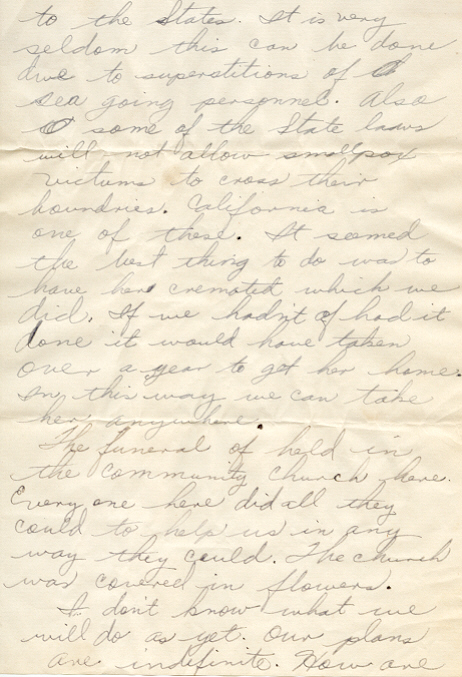 to the States. It is very
seldom this can be done
due to superstitions of
sea going personnel. Also
some of the State laws
will not allow smallpox
victums to cross their
boundries. California is
one of these. It seemed
the best thing to do was to
have her cremated which we
did. If we hadn't of had it
done it would have taken
over a year to get her home.
In this way we can take
her anywhere.
The funeral of held in
the community church here.
Every one here did all they
could to help us in any
way they could. The church
was covered in flowers.
I don't know what we
will do as yet. Our plans
are indefinite. How are